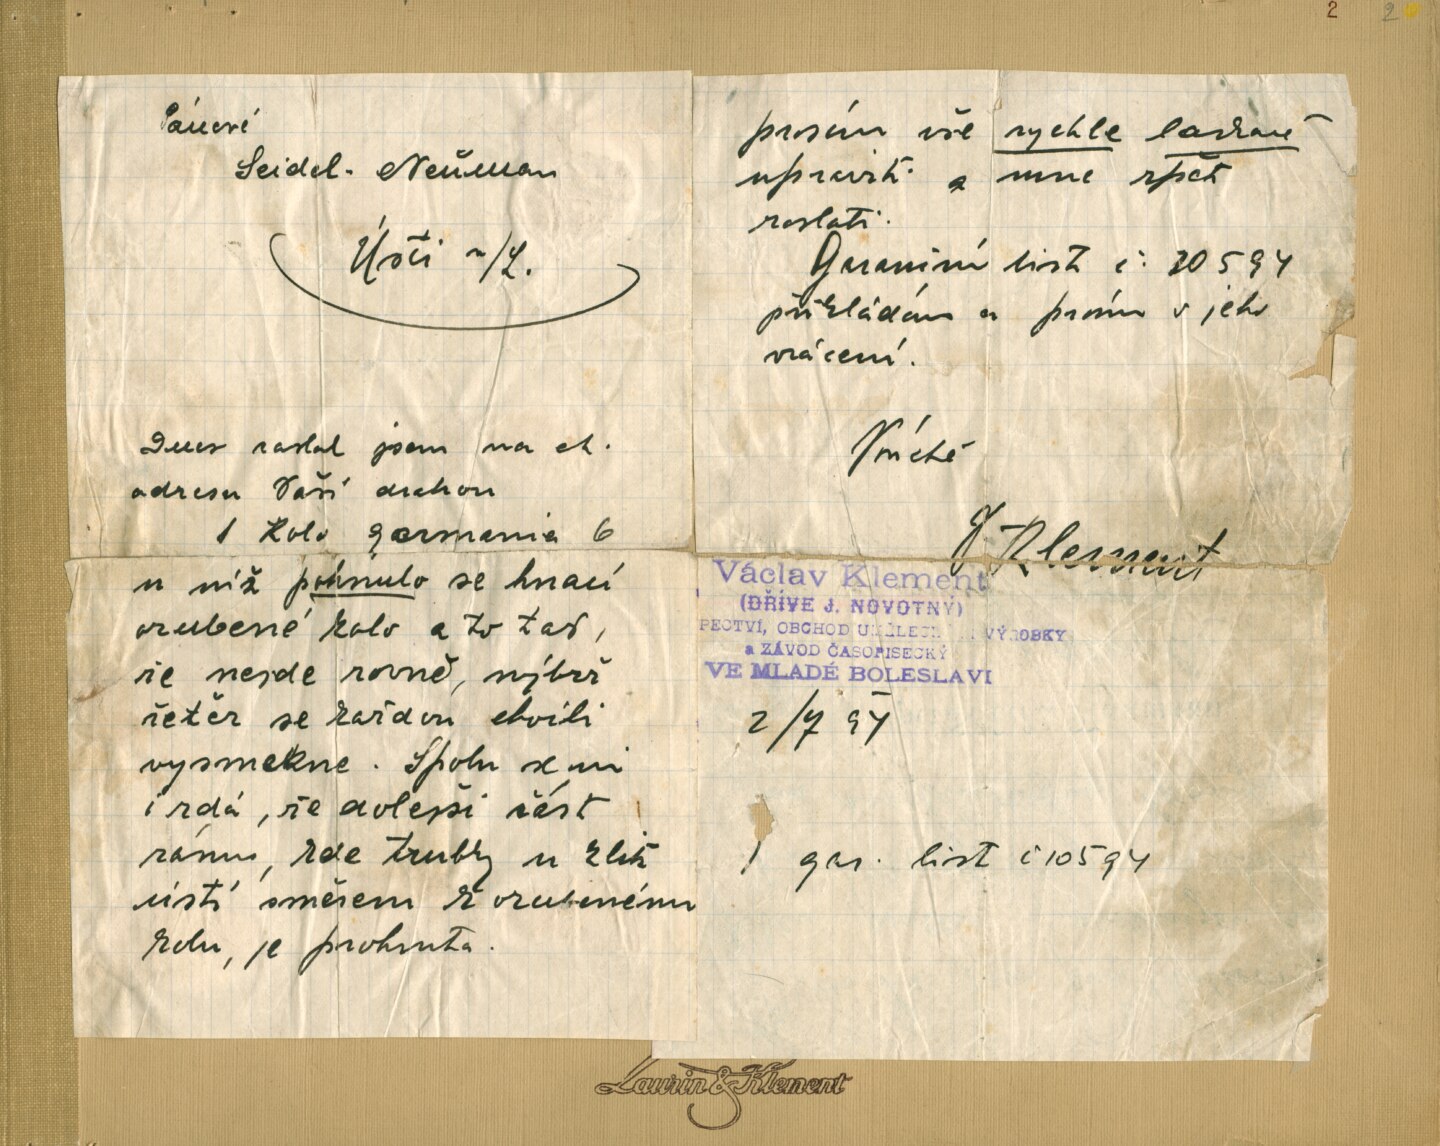 Pánové
Seidel - Neuman
Ústí n/L.
Dnes zaslal jsem na ct.
adresu Vaší drahou
1 Kolo germania 6
u níž pohnulo se hnací
ozubené kolo a to tak,
že nejde rovně, nýbrž
řetěz se každou chvíli
vysmekne. Spolu se mi
i zdá, že dolejší část
rámu, kde trubky u klik
ústí směrem k ozubenému
kolu, je prohnuta.
prosím vše rychle laskavě
upraviti a mne zpět
zaslati.
Garanční list č. 10594
přikládám a prosím o jeho
vrácení.
V úctě
V Klement
Václav Klement
(DŘÍVE J. NOVOTNÝ)
PECTVÍ, OBCHOD UMĚLECK VÝROBKY
a ZÁVOD ČASOPISECKÝ
VE MLADÉ BOLESLAVI
2/7 94
1 gar. list č 10594
Laurin & Klement
2
2